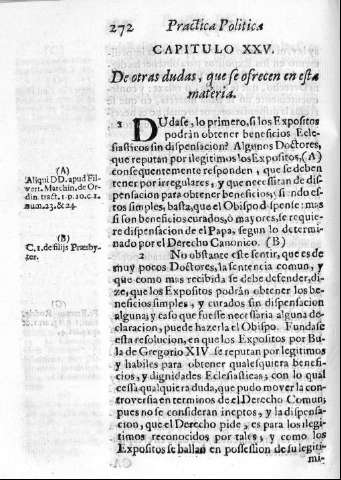 272 Practica Politica
CAPITULO XXV.
De otras dudas, que se ofrecen en esta
materia.
1 DUdase, lo primero, si los Expositos
podràn obtener beneficios Ecle-
siasticos sin dispensacion? Algunos Doctores,
que reputan por ilegitimos los Expositos, (A)
consequentemente responden, que se deben
tener por irregulares, y que necessitan de dis-
pensacion para obtener beneficios; siendo es-
tos simples, basta, que el Obispo dispense: mas
si son beneficios curados, ò mayores, se requie-
re dispensacion de el Papa, segun lo determi-
nado por el Derecho Canonico. (B)
2 No obstante este sentir, que es de
muy pocos Doctores, la sentencia comun, y
que como mas recibida se debe defender, di-
ze, que los Expositos podràn obtener los be-
neficios simples, y curados sin dispensacion
alguna; y caso que fuesse necessaria alguna de-
claracion, puede hazerla el Obispo. Fundase
esta resolucion, en que los Expositos por Bu-
la de Gregorio XIV. se reputan por legitimos
y habiles para obtener qualesquiera benefi-
cios, y dignidades Eclesiasticas; con lo qual
cessa qualquiera duda, que pudo mover la con-
troversia en terminos de el Derecho Comun;
pues no se consideran ineptos, y la dispensa-
cion, que el Derecho pide, es para los ilegi-
timos reconocidos por tales, y como los
Expositos se hallan en possession de su legiti-
mi-
(A)
Aliqui DD. apud Fil-
wert. Matchin, de Or-
din. tract. 1 p. 10. c. 1
num. 23. & 24.
(B)
C. 1. de filijs Præsby-
ter.